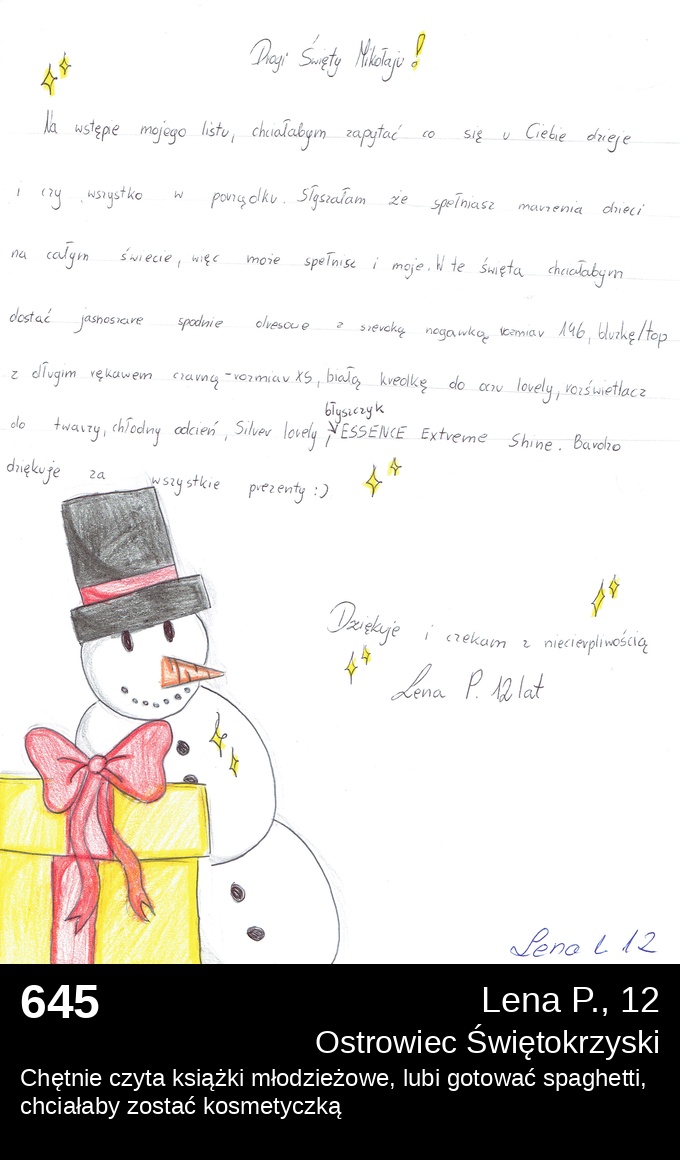 Drogi Święty Mikołaju!
Na wstępie mojego listu, chciałabym zapytać co się u Ciebie dzieje
i czy wszystko w porządku. Słyszałam że spełniasz marzenia dzieci
na całym świecie, więc może spełnisz i moje. W te święta chciałabym
dostać jasnoszare spodnie dresowe z szeroką nogawką rozmiar 146, bluzkę/top
z długim rękawem czarną - rozmiar XS, białą kredkę do oczu lovely, rozświetlacz
do twarzy, chłodny odcień, Silver lovely, błyszczyk ESSENCE Extreme Shine. Bardzo
dziękuje za wszystkie prezenty :)
Dziękuje i czekam z niecierpliwością
Lena P. 12 lat
Lena l 12
645
Lena P., 12
Ostrowiec Świętokrzyski
Chętnie czyta książki młodzieżowe, lubi gotować spaghetti,
chciałaby zostać kosmetyczką